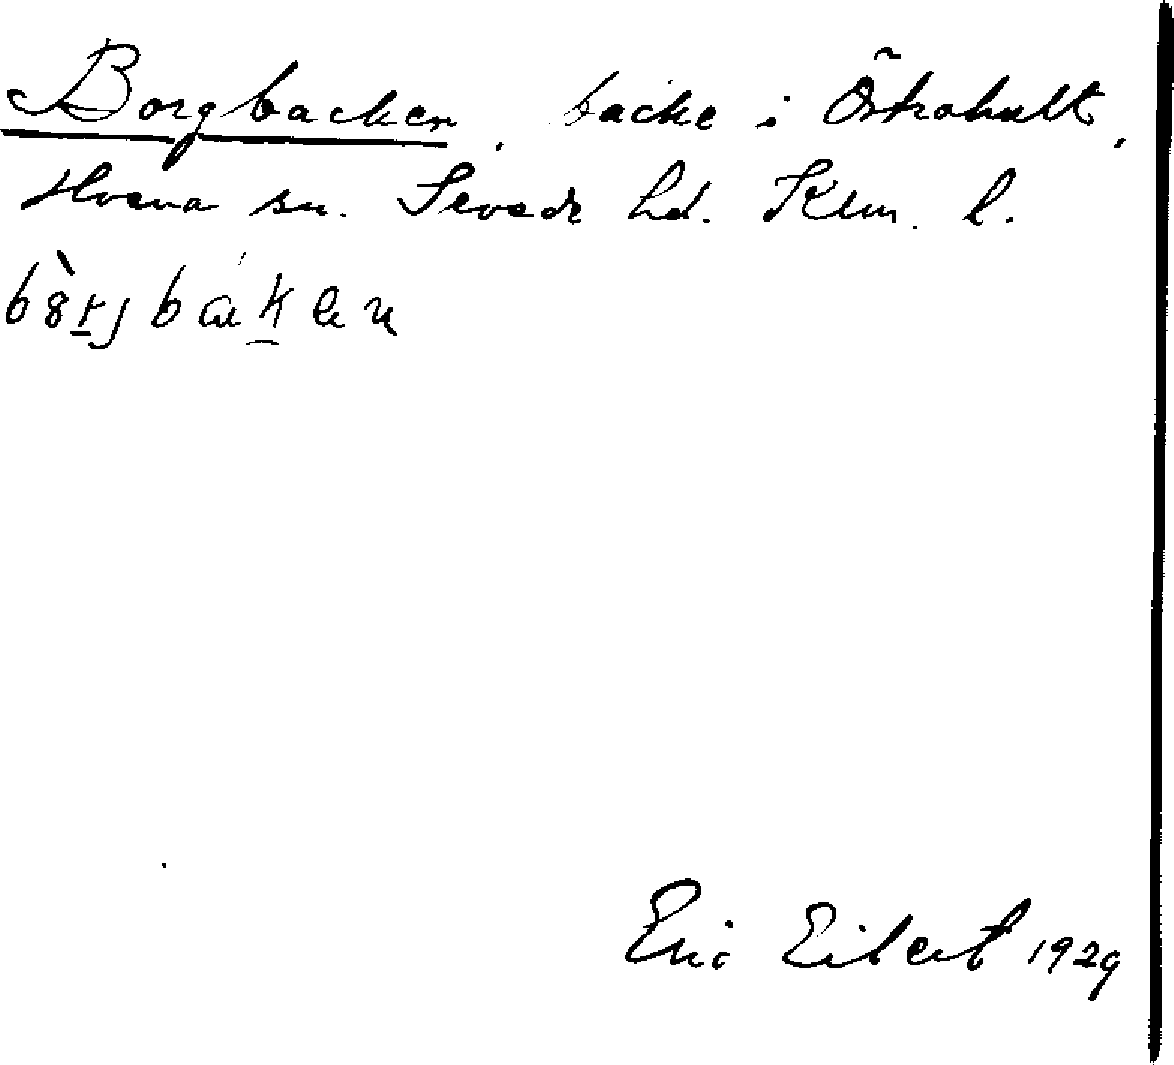 Borgbacken, backe i Östrahult,
Hvena sn. Sevede hd. Klm. l.
Eric Eibert 1929